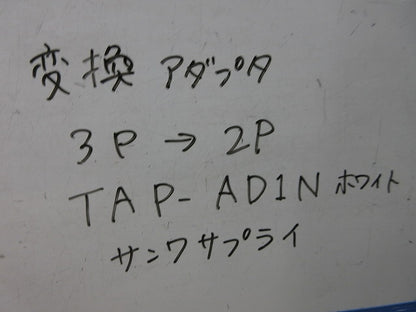 変換 アダプタ
3P → 2P
TAP-AD1N ホワイト
サンワサプライ